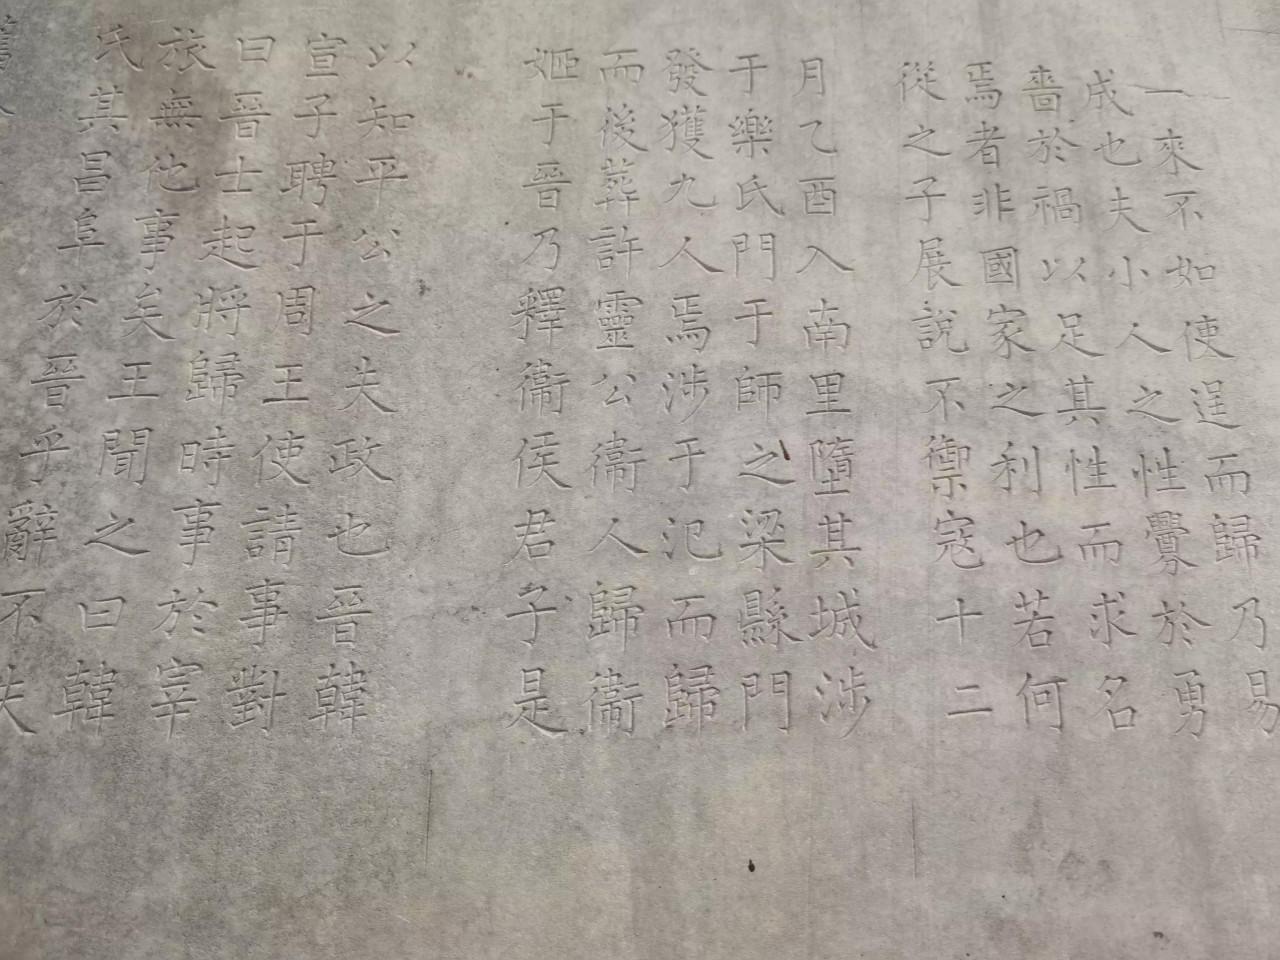 一來不如使逞而歸乃易
成也夫小人之性釁於勇
嗇於禍以足其性而求名
焉者非國家之利也若何
從之子展說不禦寇十二
月乙酉入南里墮其城涉
于樂氏門于師之梁縣門
發獲九人焉涉于氾而歸
而後葬許靈公衞人歸衞
姬于晉乃釋衞侯君子是
以知平公之失政也晉韓
宣子聘于周王使請事對
曰晉士起將歸時事於宰
旅無他事矣王聞之曰韓
氏其昌阜於晉乎辭不失